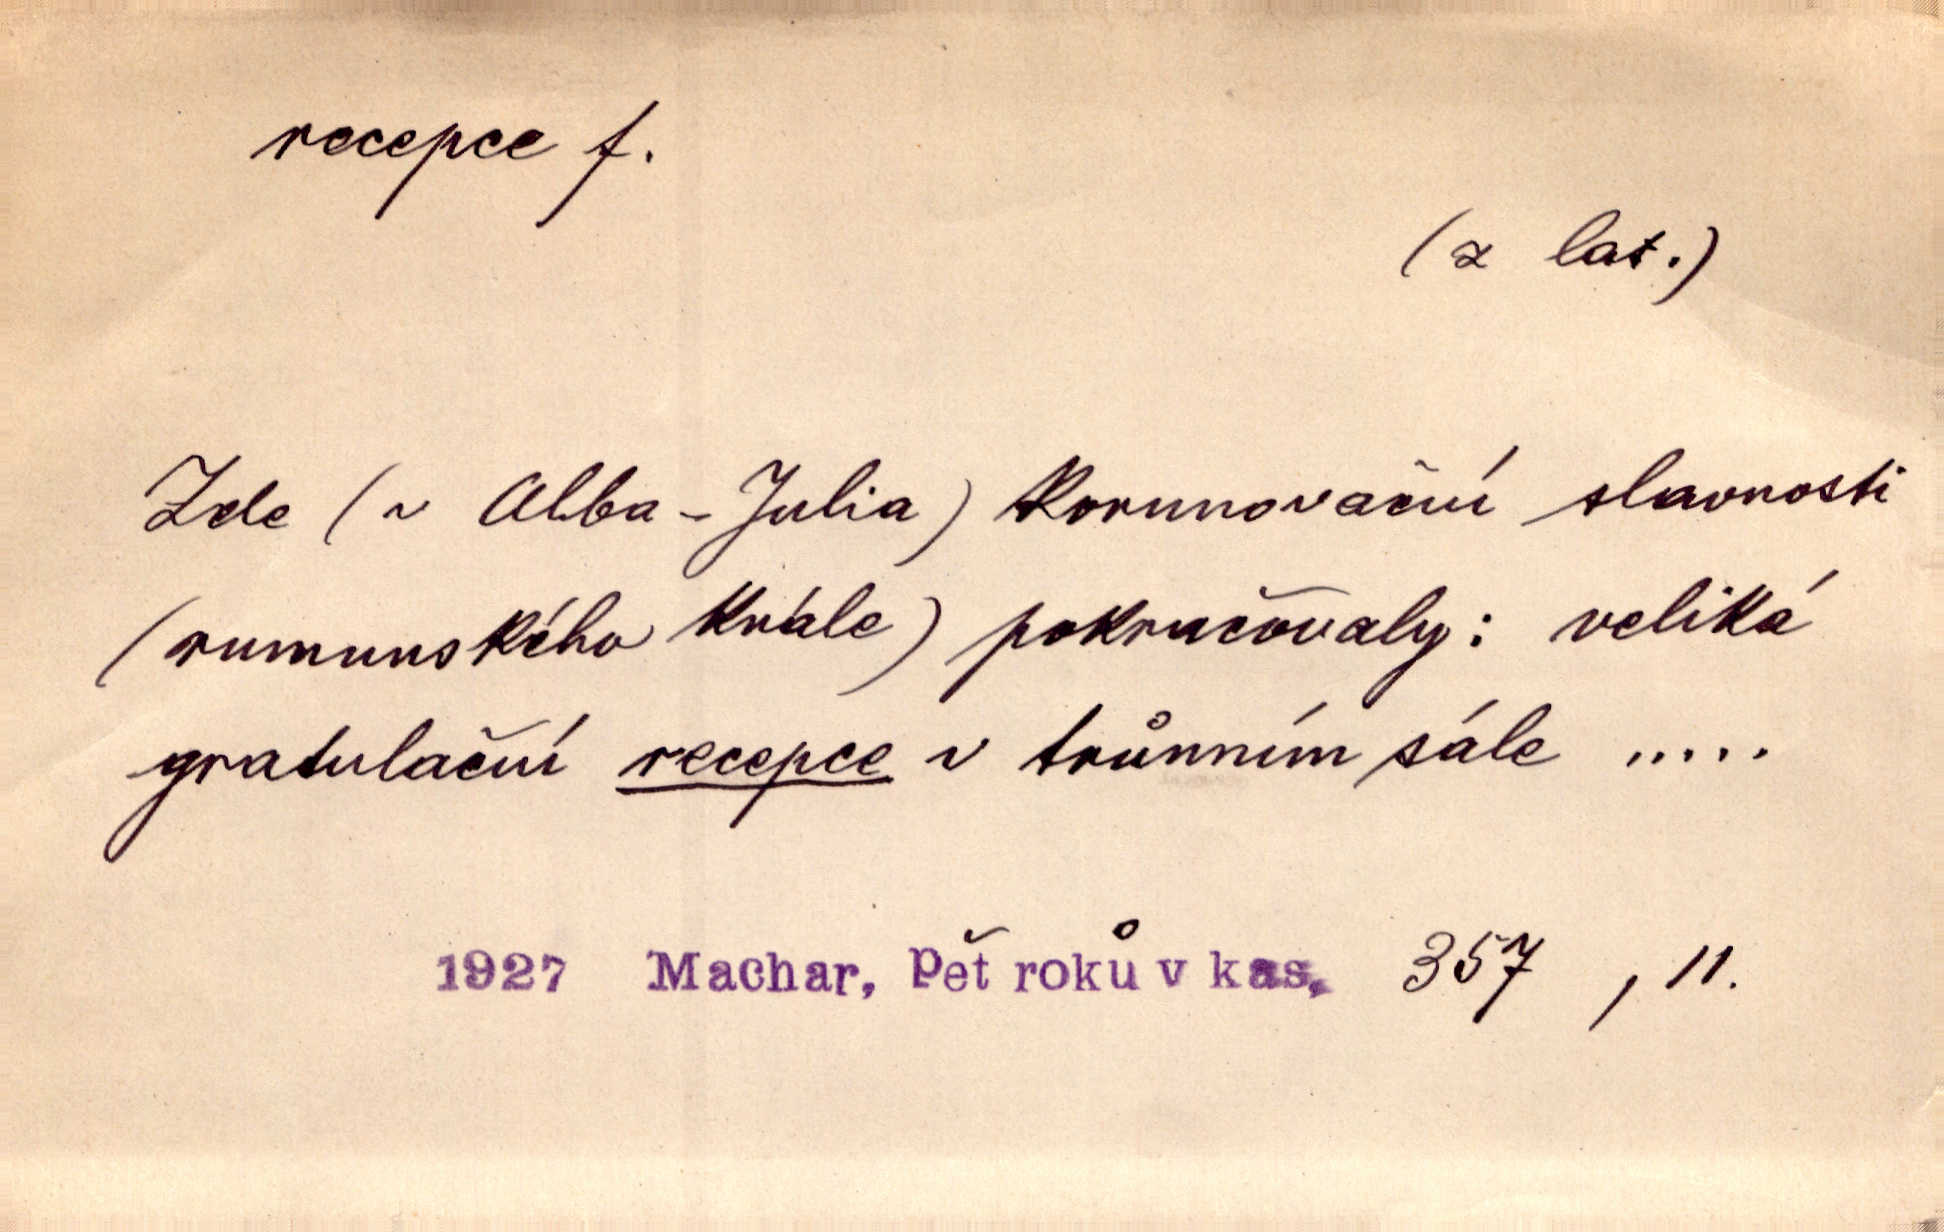 recepce f.
(z lat.)
Zde (v Alba-Julia) korunovační slavnosti
(rumunského krále) pokračovaly: veliká
gratulační recepce v trůnním sále .....
1927 Machar, Pět roků v kas. 357 , 11.